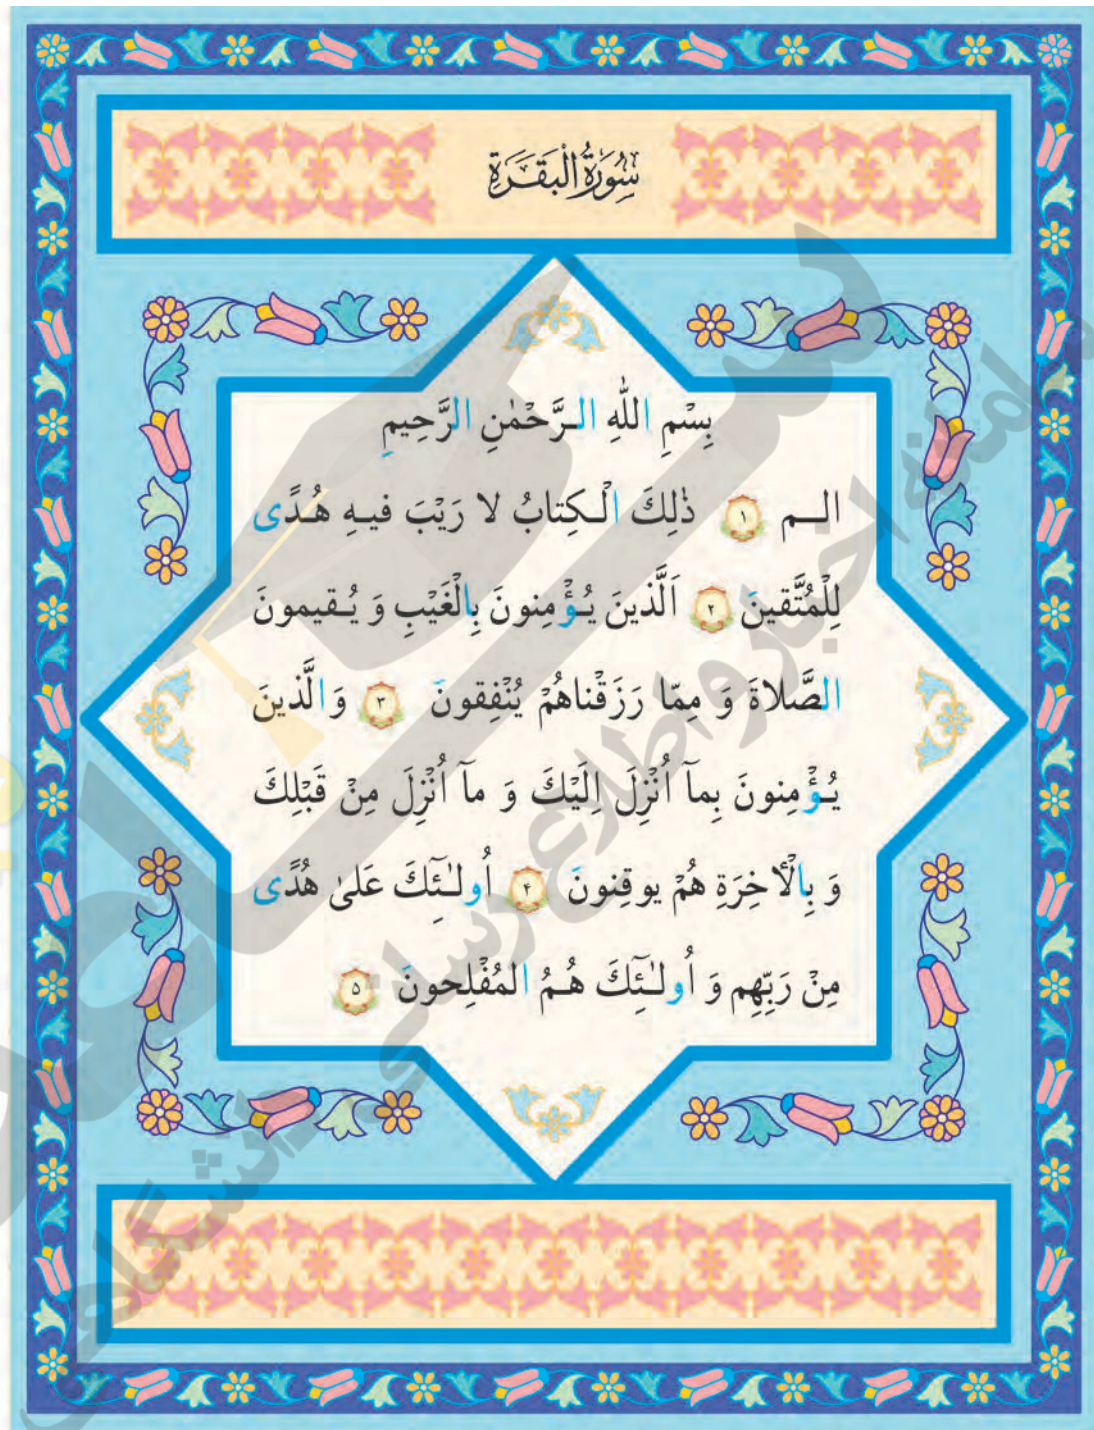 سُورَةُ الْبَقَرَةِ
بِسْمِ اللّٰهِ الرَّحْمٰنِ الرَّحِيمِ
الـم ۱ ذٰلِكَ الْكِتابُ لا رَيْبَ فيهِ هُدًى
لِلْمُتَّقينَ ۲ اَلَّذينَ يُؤْمِنونَ بِالْغَيْبِ وَ يُقيمونَ
الصَّلاةَ وَ مِمّا رَزَقْناهُمْ يُنْفِقونَ ۳ وَالَّذينَ
يُؤْمِنونَ بِمآ اُنْزِلَ اِلَيْكَ وَ مآ اُنْزِلَ مِنْ قَبْلِكَ
وَ بِالْاٰخِرَةِ هُمْ يوقِنونَ ۴ اُولـٰٓئِكَ عَلىٰ هُدًى
مِنْ رَبِّهِم وَ اُولـٰٓئِكَ هُمُ المُفْلِحونَ ۵